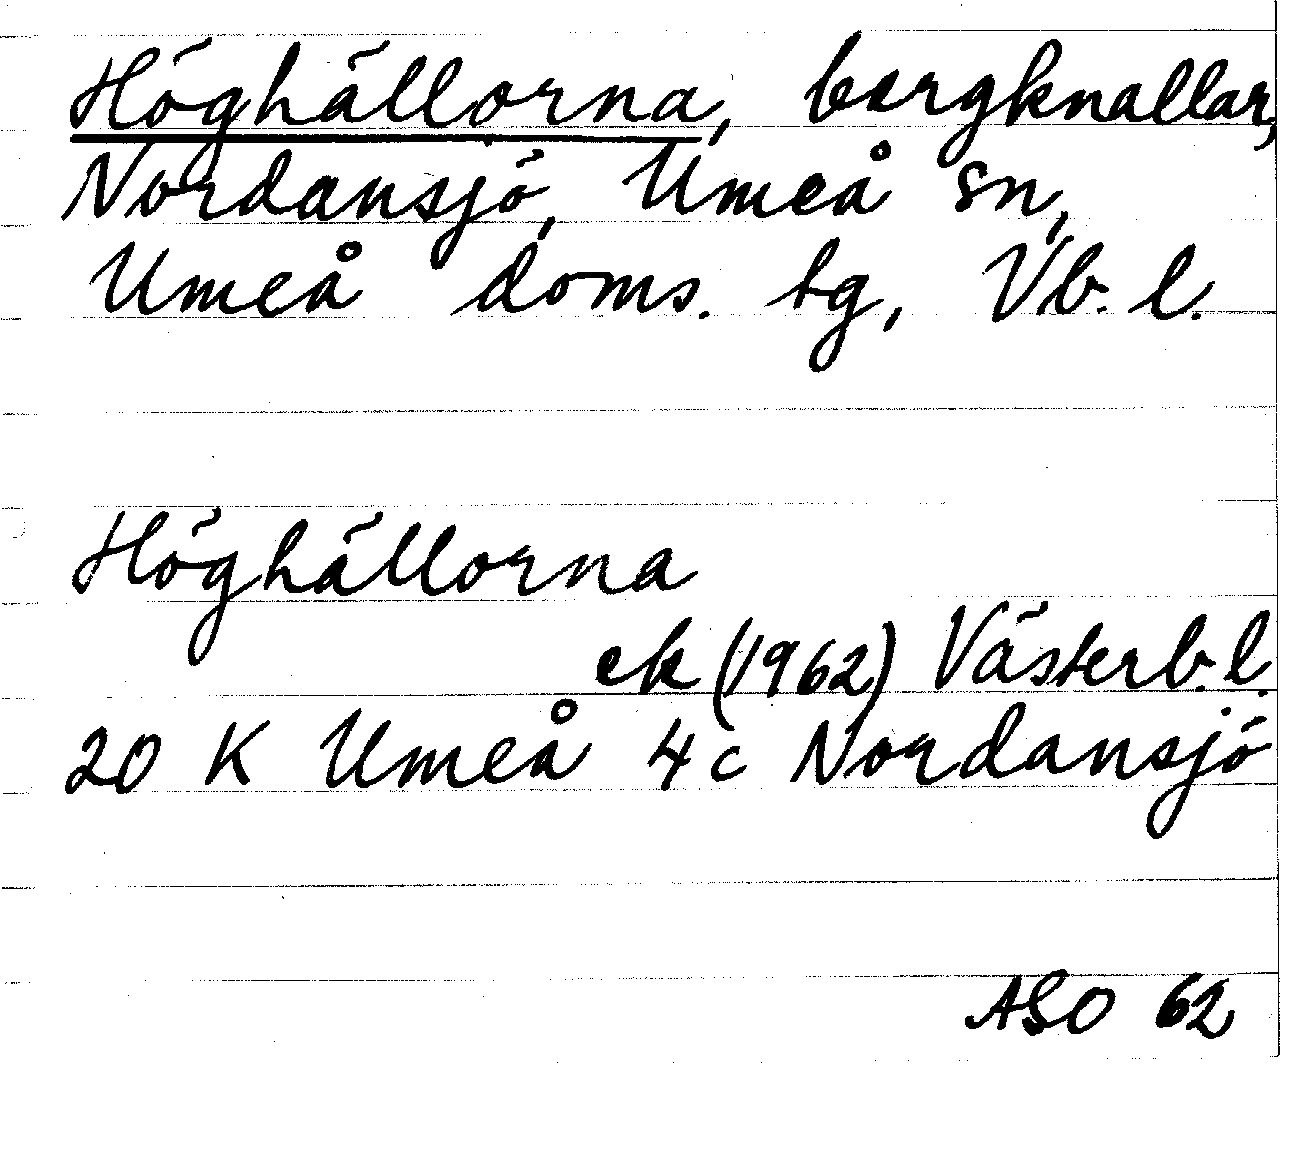 Höghällorna, bergknallar,
Nordansjö, Umeå sn,
Umeå doms. tg, Vb. l.
Höghällorna
ek (1962) Västerb. l.
20 K Umeå 4c Nordansjö
ASO 62